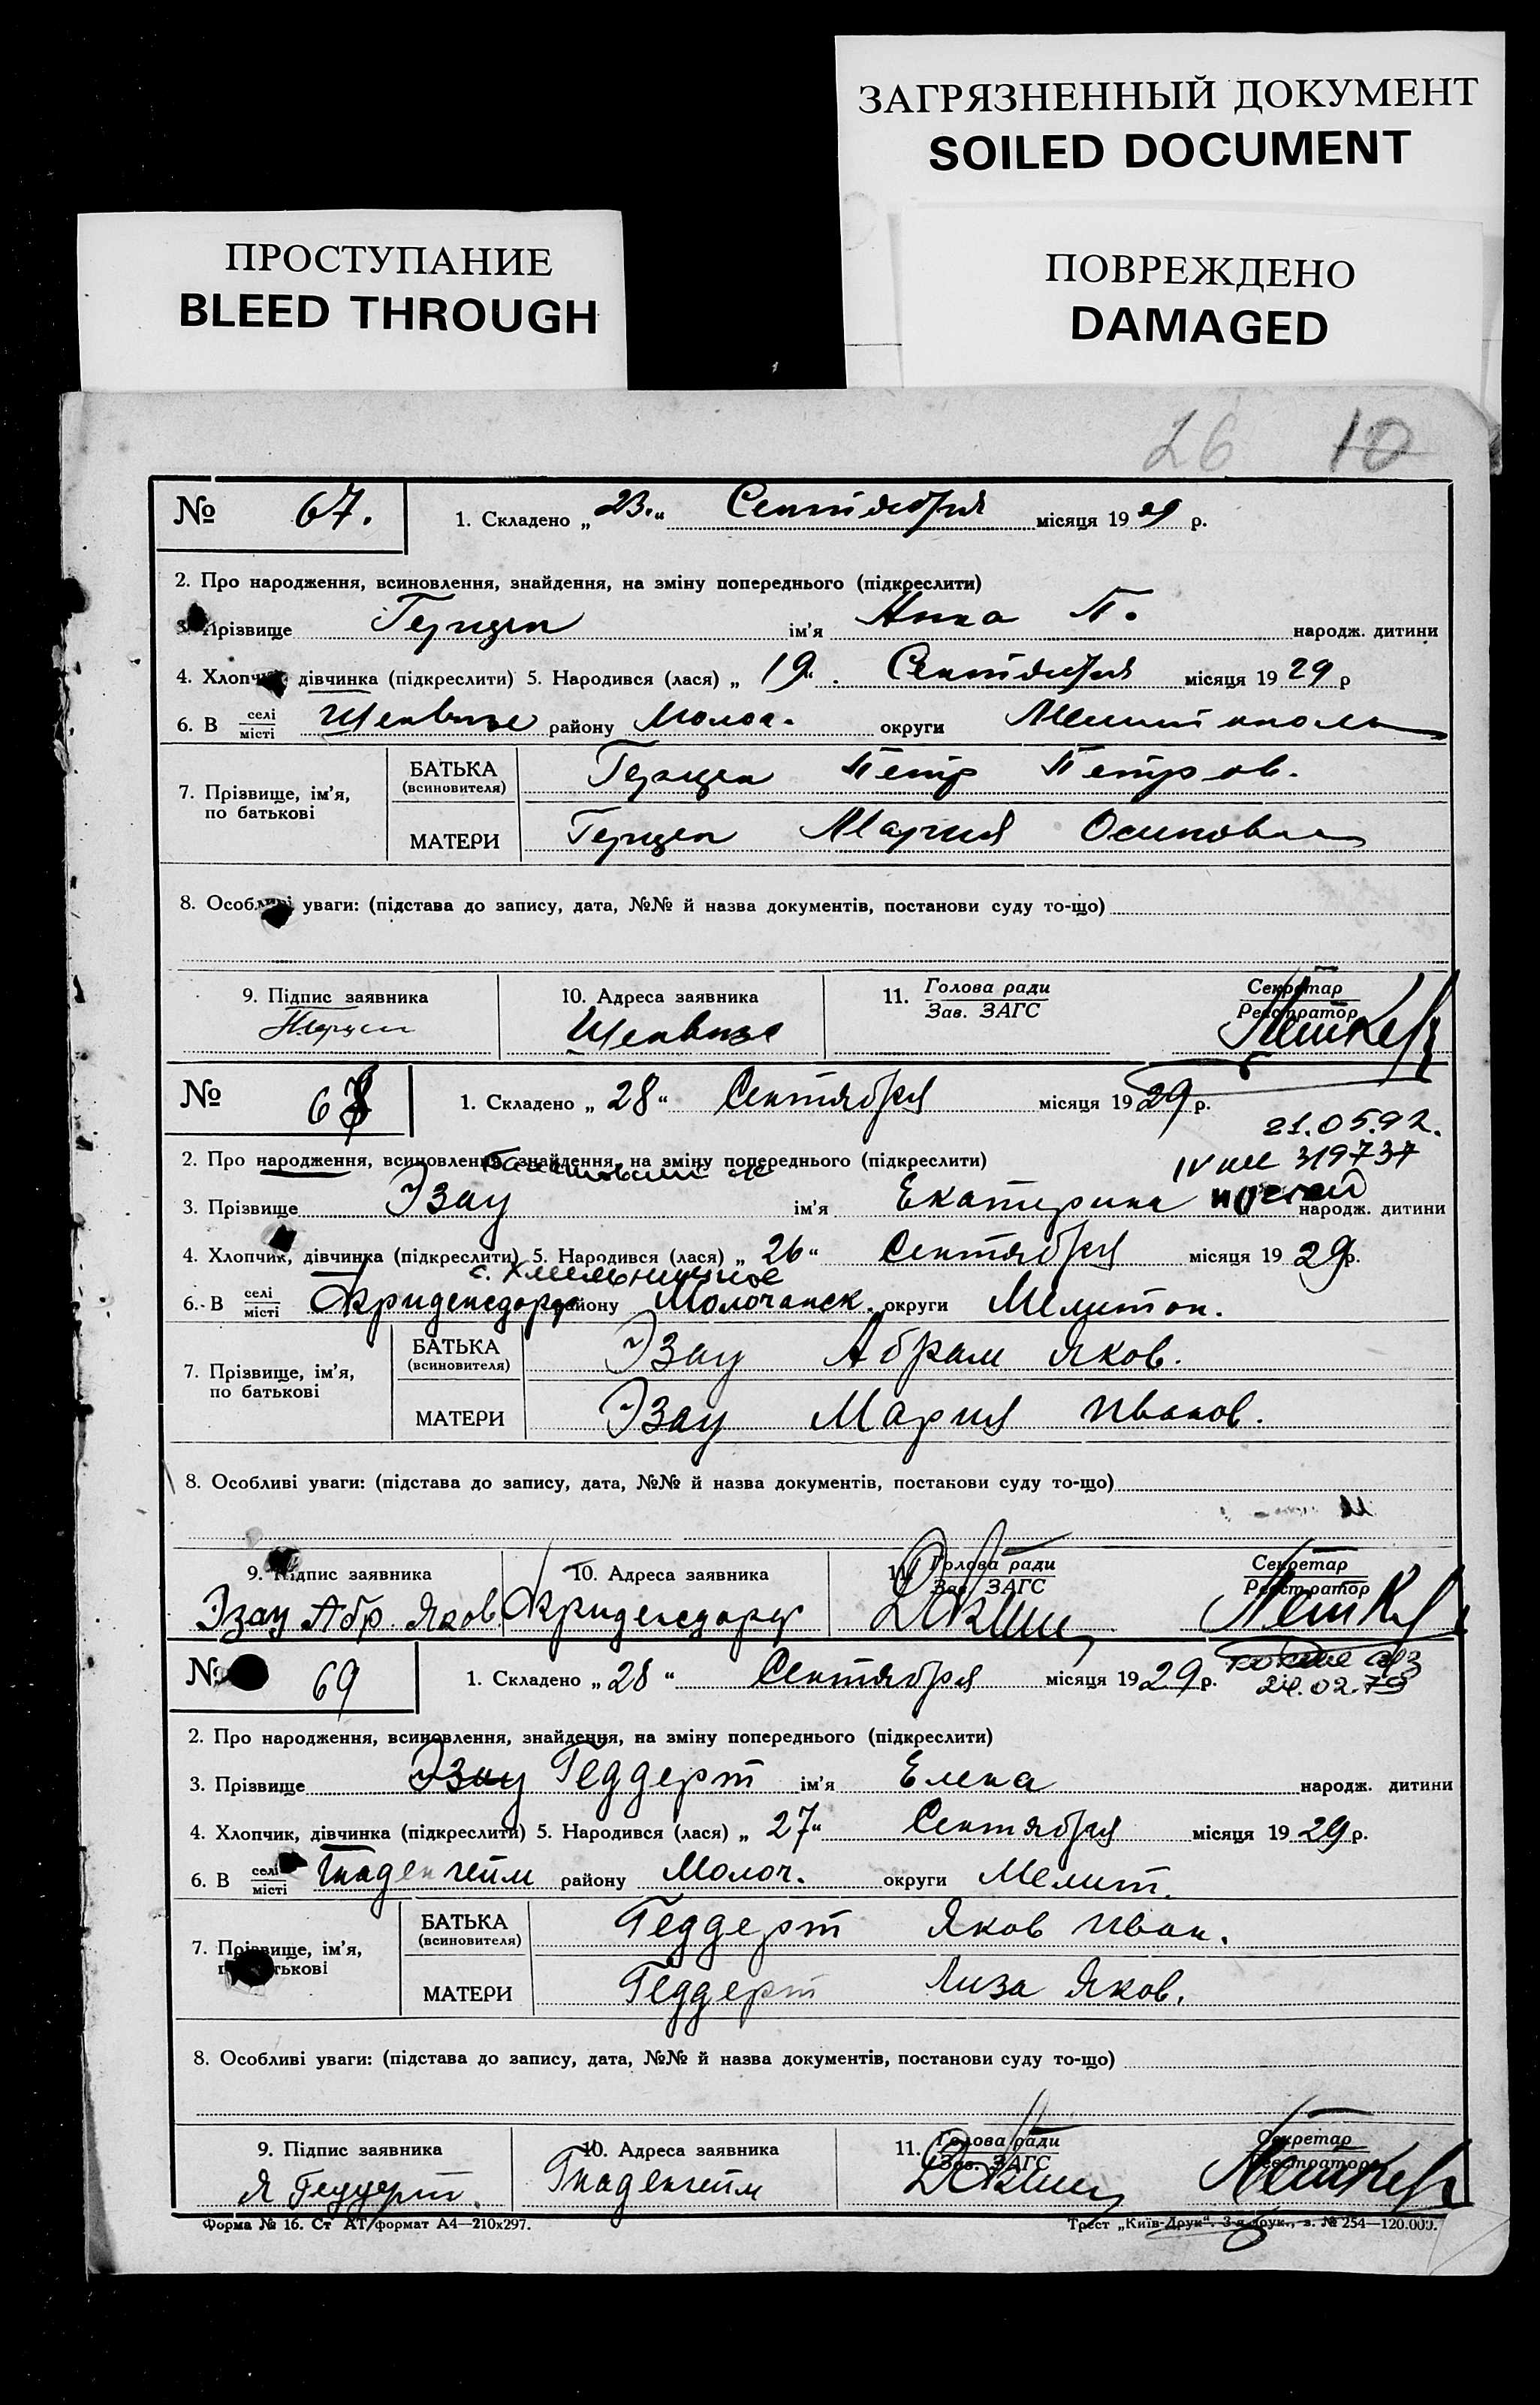 ЗАГРЯЗНЕННЫЙ ДОКУМЕНТ
SOILED DOCUMENT
ПРОСТУПАНИЕ
BLEED THROUGH
ПОВРЕЖДЕНО
DAMAGED
26 10
№ 67. 1. Складено „23.“ Сентября місяця 1929 р.
2. Про народження, всиновлення, знайдення, на зміну попереднього (підкреслити)
3. Прізвище Герцен ім'я Анна П. народж. дитини
4. Хлопчик, дівчинка (підкреслити) 5. Народився (лася) „19“ Сентября місяця 1929 р
6. В селі/місті Шенвизе району Молоч. округи Мелитополь
7. Прізвище, ім'я, по батькові
БАТЬКА (всиновителя) Герцен Петр Петров.
МАТЕРИ Герцен Мария Осиповна
8. Особливі уваги: (підстава до запису, дата, №№ й назва документів, постанови суду то-що)
9. Підпис заявника 10. Адреса заявника 11. Голова ради/Зав. ЗАГС Секретар/Реєстратор
Шенвизе
№ 68 1. Складено „28“ Сентября місяця 1929 р.
21.05.92.
319737
2. Про народження, всиновлення, знайдення, на зміну попереднього (підкреслити)
3. Прізвище Эзау ім'я Екатерина народж. дитини
4. Хлопчик, дівчинка (підкреслити) 5. Народився (лася) „26“ Сентября місяця 1929 р.
с. Хмельницкое
6. В селі/місті Фриденсдорф району Молочанск. округи Мелитоп.
7. Прізвище, ім'я, по батькові
БАТЬКА (всиновителя) Эзау Абрам Яков.
МАТЕРИ Эзау Мария Иванов.
8. Особливі уваги: (підстава до запису, дата, №№ й назва документів, постанови суду то-що)
9. Підпис заявника 10. Адреса заявника 11. Голова ради/Зав. ЗАГС Секретар/Реєстратор
Эзау Абр. Яков. Фриденсдорф
№ 69 1. Складено „28“ Сентября місяця 1929 р.
24.02.79
2. Про народження, всиновлення, знайдення, на зміну попереднього (підкреслити)
3. Прізвище Эзау Геддерт ім'я Елена народж. дитини
4. Хлопчик, дівчинка (підкреслити) 5. Народився (лася) „27“ Сентября місяця 1929 р.
6. В селі/місті Гнаденгейм району Молоч. округи Мелит.
7. Прізвище, ім'я, по батькові
БАТЬКА (всиновителя) Геддерт Яков Иван.
МАТЕРИ Геддерт Лиза Яков.
8. Особливі уваги: (підстава до запису, дата, №№ й назва документів, постанови суду то-що)
9. Підпис заявника 10. Адреса заявника 11. Голова ради/Зав. ЗАГС Секретар/Реєстратор
Я Геддерт. Гнаденгейм
Форма № 16. Ст АТ/формат А4—210х297. Трест „Київ-Друк“. 3-я друк., з. № 254—120.000.